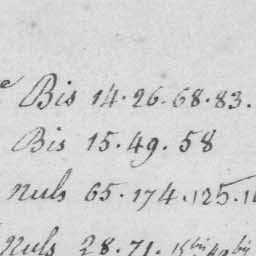 Bis 14.26.68.83.
Bis 15.49.58
nuls 65.174.125.1
nuls 28.71.